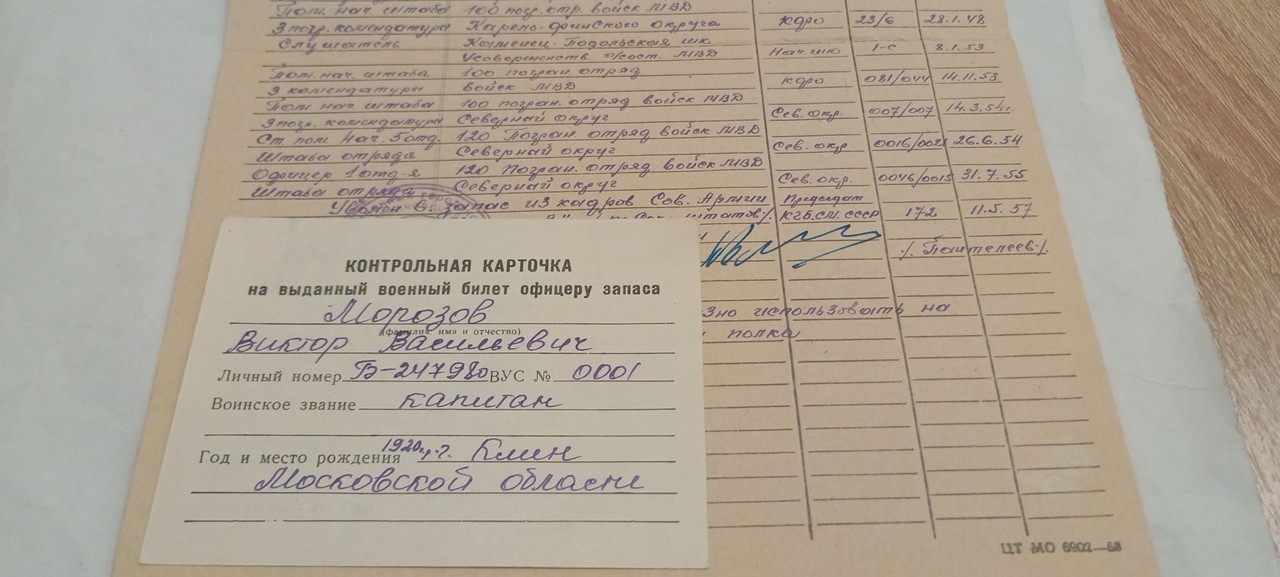 Пом. нач. штаба 100 погр. отр. войск МВД
3 погр. комендатура Карело-финского округа КФПО 23/6 28.1.48
Слушатель Каменец-Подольская шк.
Усовершенств. о/сост. МВД Нач. шк 1-с 8.1.53
Пом. нач. штаба 100 погран. отряд
3 комендатуры войск МВД КФПО 081/044 14.11.53
Пом. нач. штаба 100 погран. отряд войск МВД
3 погр. комендатура Северный округ Сев. окр. 007/007 14.3.54г.
Ст. пом. нач. 5 отд. 120 Погран. отряд войск МВД
Штаба отряда Северный округ Сев. окр. 0016/0021 26.6.54
Офицер 1 отд-я 120 Погран. отряд войск МВД
Штаба отряда Северный округ Сев. окр. 0046/0015 31.7.55
Уволен в запас из кадров Сов. Армии Председат
штатов/. КГБ.СМ. СССР 172 11.5.57
/. Пантелеев./.
использовать на
полка
КОНТРОЛЬНАЯ КАРТОЧКА
на выданный военный билет офицеру запаса
Морозов
(фамилия, имя и отчество)
Виктор Васильевич
Личный номер Б-247980 ВУС № 0001
Воинское звание капитан
Год и место рождения 1920 г. г. Клин
Московской области
ЦТ МО 6902—53